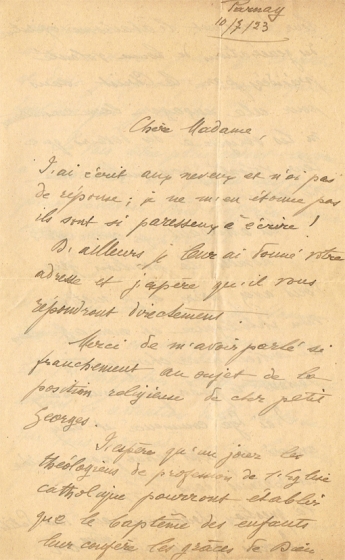 Parnay
10/7/23
Chère Madame,
J'ai écrit aux neveux et n'ai pas
de réponse ; je ne m'en étonne pas
ils sont si paresseux à écrire !
D'ailleurs je leur ai donné votre
adresse et j'espère qu'il vous
répondront directement.
Merci de m'avoir parlé si
franchement au sujet de la
position religieuse de cher petit
Georges.
J'espère qu'un jour les
théologiens de profession de l'Eglise
catholique pourront établir
que le baptême des enfants
leur confère les grâces de Dieu